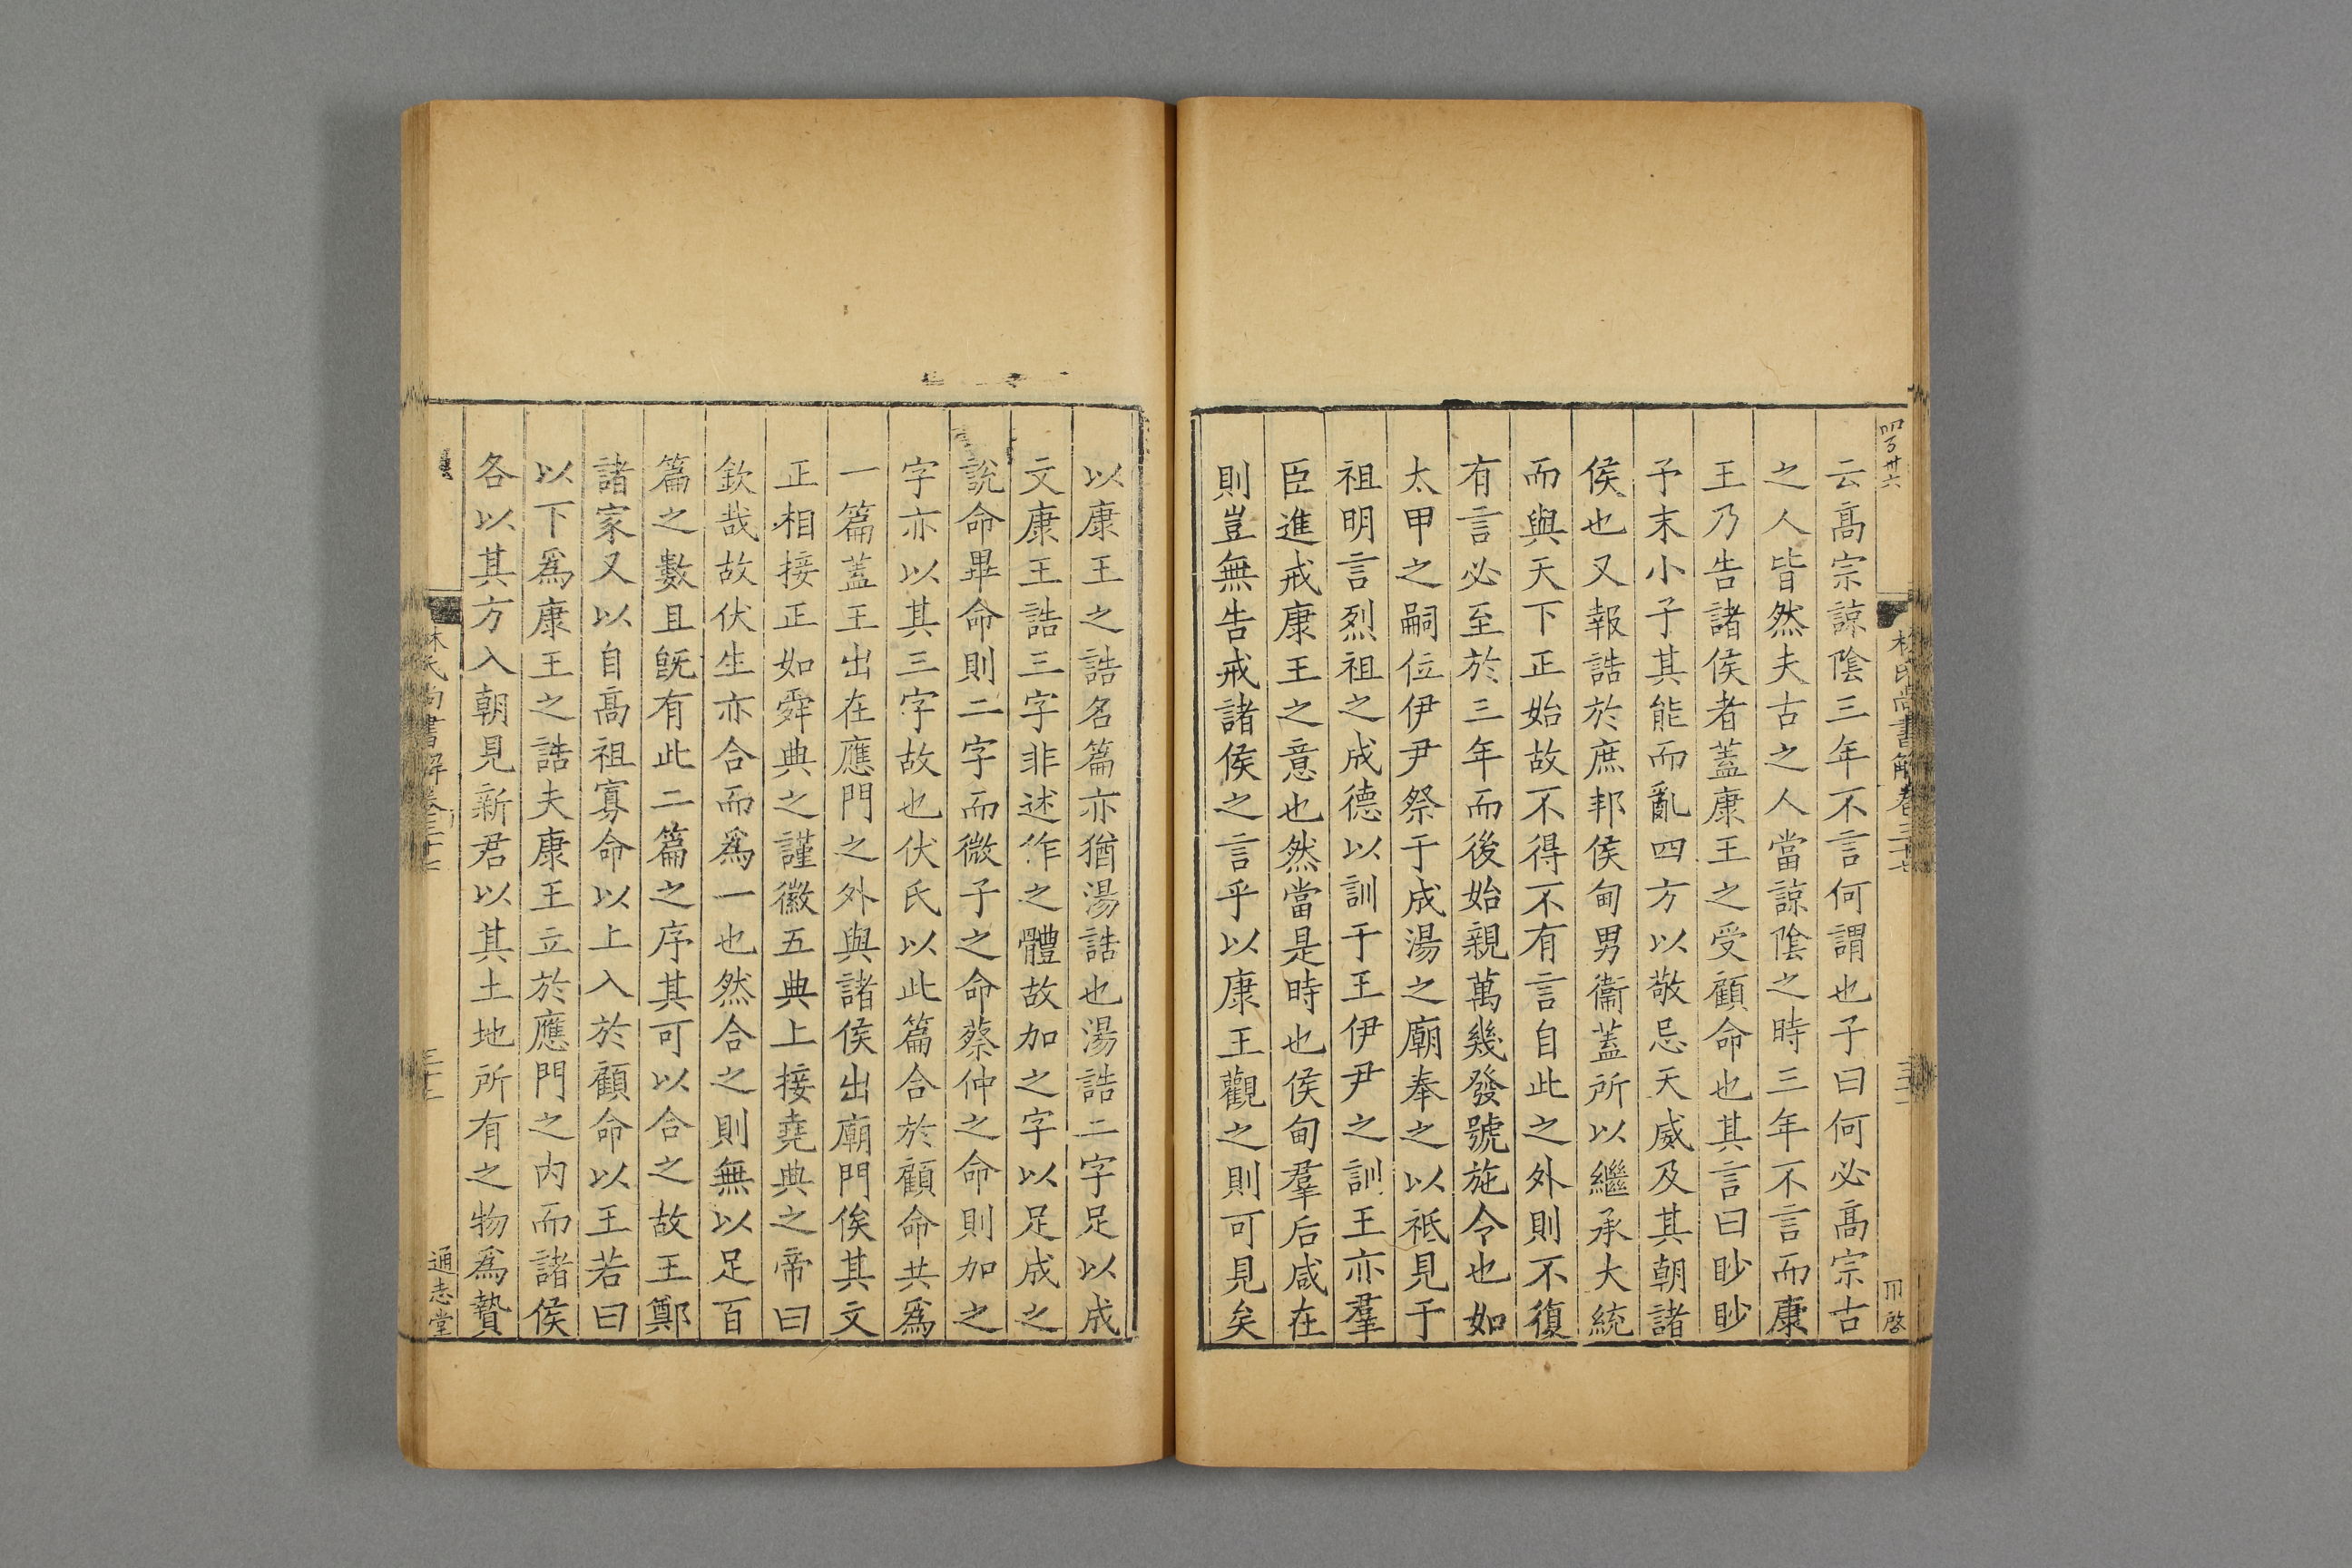 云髙宗諒陰三年不言何謂也子曰何必髙宗古
之人皆然夫古之人當諒陰之時三年不言而康
王乃告諸侯者蓋康王之受顧命也其言曰眇眇
予末小子其能而亂四方以敬忌天威及其朝諸
侯也又報誥於庶邦侯甸男衞蓋所以繼承大統
而與天下正始故不得不有言自此之外則不復
有言必至於三年而後始親萬幾發號施令也如
太甲之嗣位伊尹祭于成湯之廟奉之以祗見于
祖明言烈祖之成德以訓于王伊尹之訓王亦羣
臣進戒康王之意也然當是時也侯甸羣后咸在
則豈無告戒諸侯之言乎以康王觀之則可見矣
以康王之誥名篇亦猶湯誥也湯誥二字足以成
文康王誥三字非述作之體故加之字以足成之
說命畢命則二字而微子之命蔡仲之命則加之
字亦以其三字故也伏氏以此篇合於顧命共爲
一篇蓋王出在應門之外與諸侯出廟門俟其文
正相接正如舜典之謹徽五典上接堯典之帝曰
欽哉故伏生亦合而爲一也然合之則無以足百
篇之數且旣有此二篇之序其可以合之故王鄭
諸家又以自髙祖寡命以上入於顧命以王若曰
以下爲康王之誥夫康王立於應門之内而諸侯
各以其方入朝見新君以其土地所有之物爲贄
通志堂